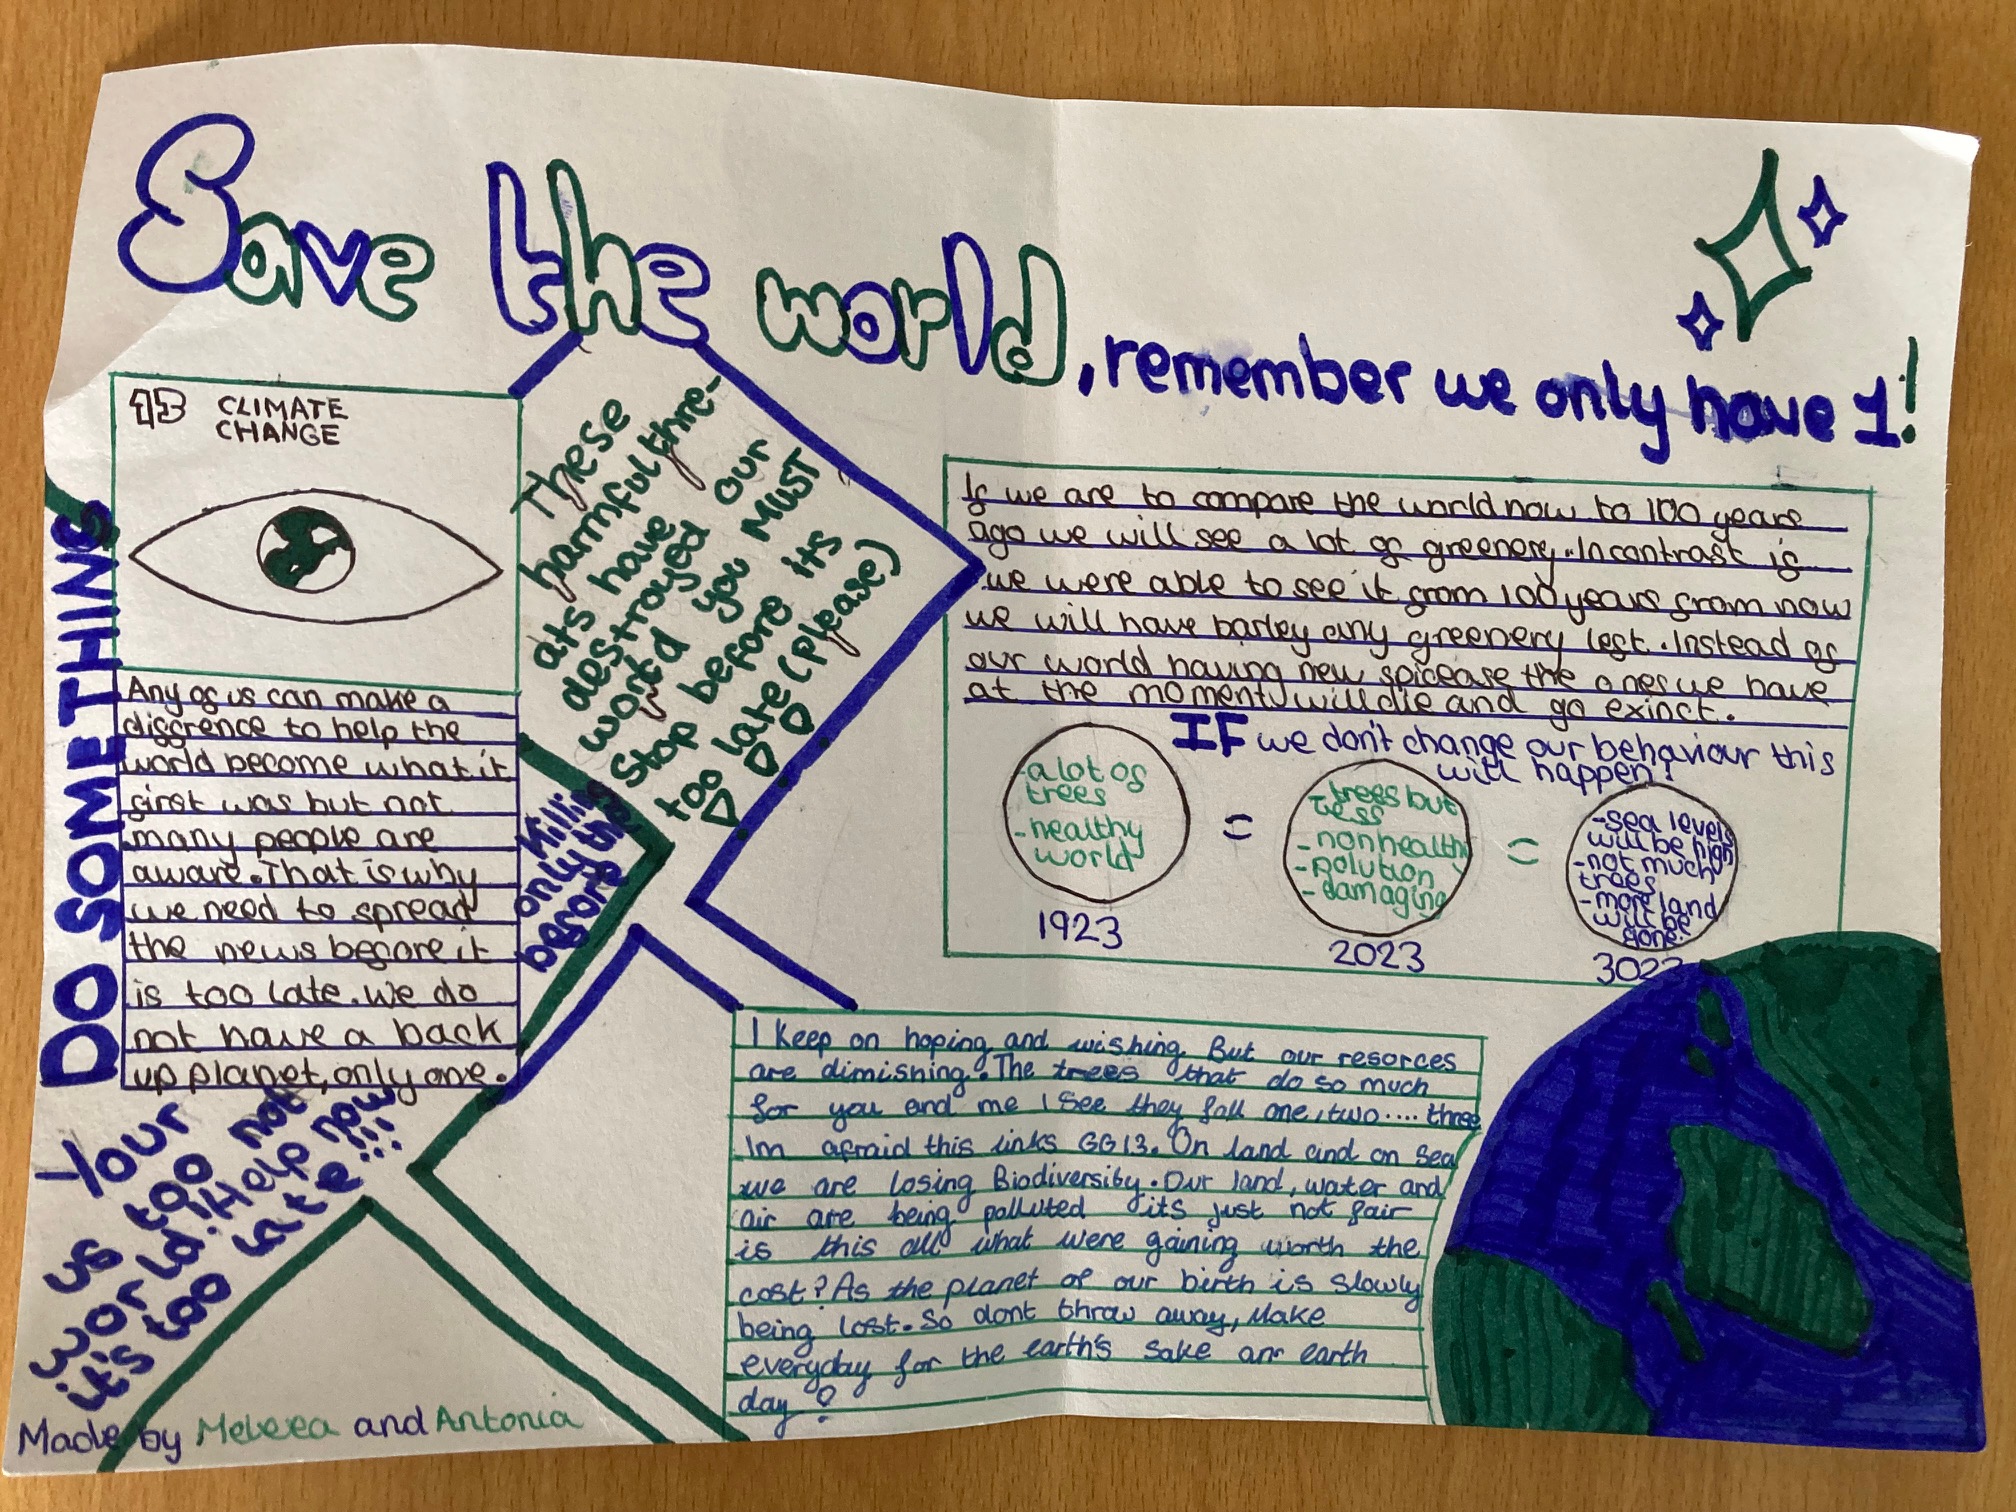 Save the world, remember we only have 1!
13 CLIMATE
CHANGE
DO SOMETHING
Any of us can make a
diffrence to help the
world become what it
first was but not
many people are
aware. That is why
we need to spread
the news before it
is too late. we do
not have a back
up planet, only one.
These
harmful thre-
ats have
destroyed our
world you MUST
stop before its
too late (please)
killin
only the
begon
Your
us too not
world! Help now
it's too late!!!
Made by Melissa and Antonia
If we are to compare the world now to 100 years
ago we will see a lot of greenery. In contrast if
we were able to see it from 100 years from now
we will have barley any greenery left. Instead of
our world having new spicease the ones we have
at the moment will die and go exinct.
IF we don't change our behaviour this
will happen!
-a lot of
trees
-healthy
world
1923
=
-trees but
less
-nonhealthy
-polution
-damaging
2023
=
-sea levels
will be high
-not much
trees
-more land
will be
gone.
3023
I keep on hoping and wishing But our resorces
are dimishing. The trees that do so much
for you and me I see they fall one, two.... three
Im afraid this links GG13. On land and on sea
we are losing Biodiversity. Our land, water and
air are being polluted its just not fair
is this all what were gaining worth the
cost? As the planet of our birth is slowly
being lost. So dont throw away, Make
everyday for the earth's sake an earth
day!